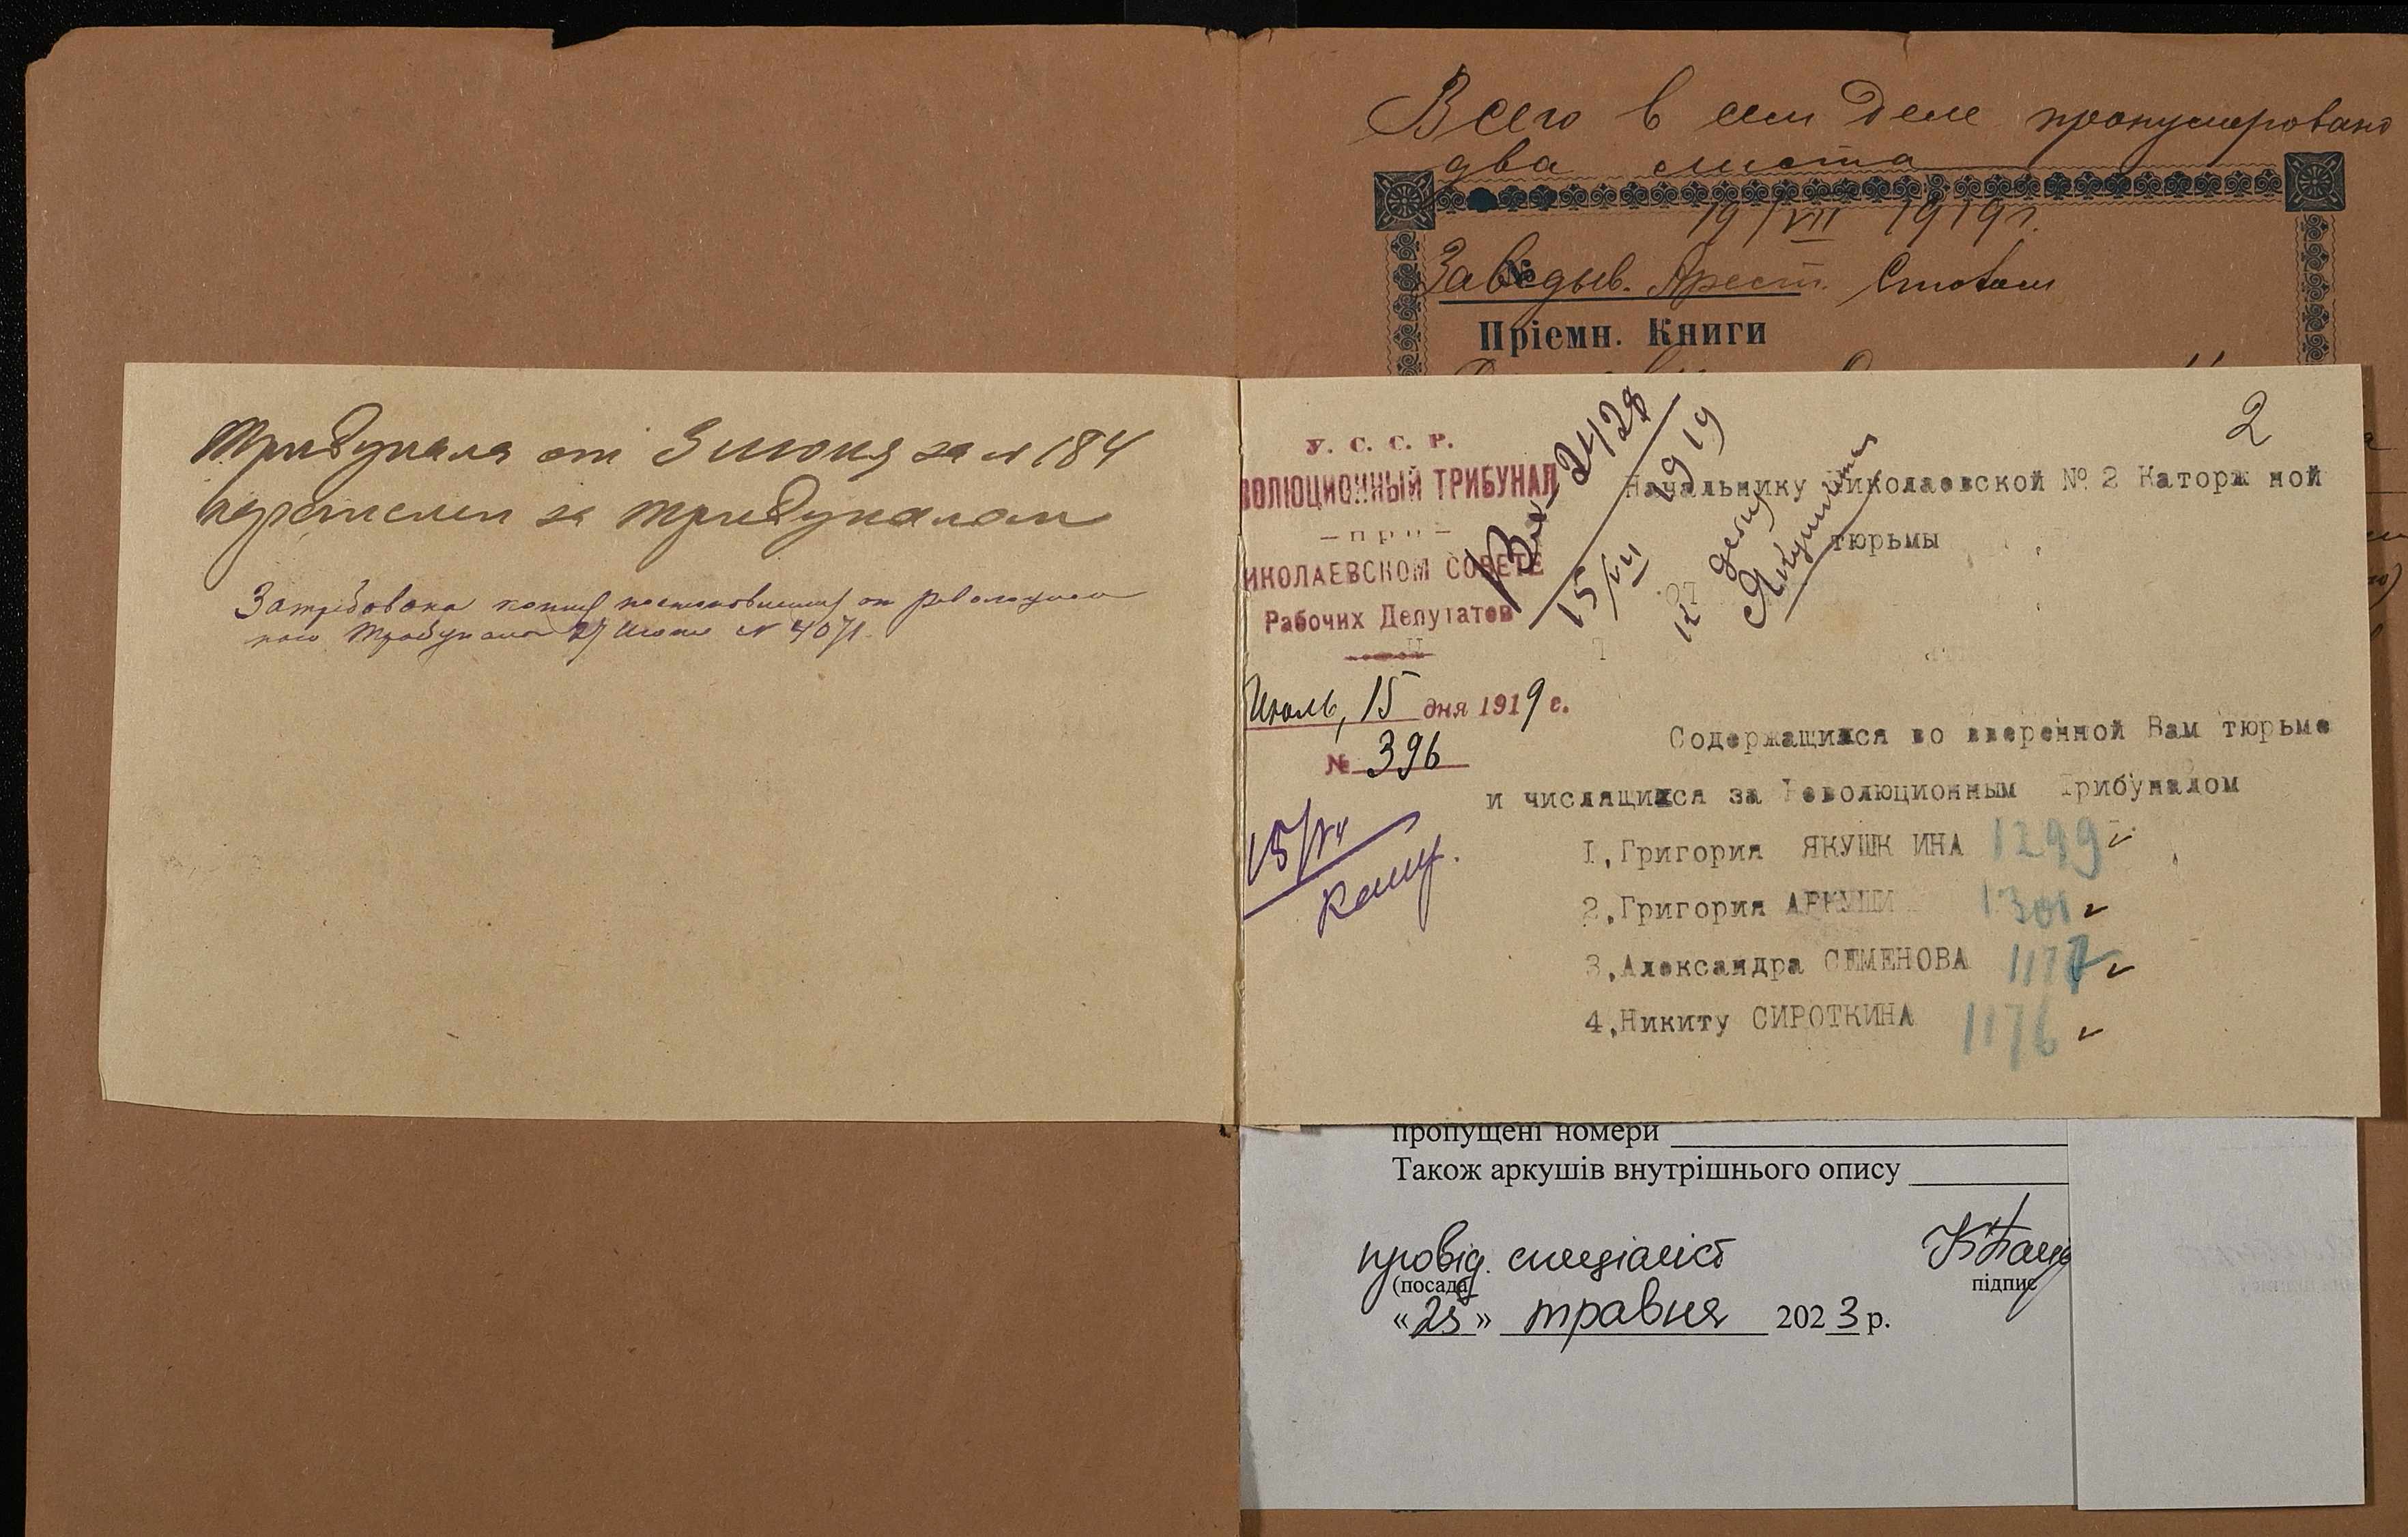 Всего в сем деле пронумеровано
два листа
19/VII 1919 г.
Заведыв. Арест.
№
Пріемн. Книги
Трибунала от 3 июня за № 184
перечислен за трибуналом
Затребована копия постановления от Революцион
ного Трибунала 27 Июня № 4071.
2
У. С. С. Р.
ВОЛЮЦИОННЫЙ ТРИБУНАЛ
– п р и –
ИКОЛАЕВСКОМ СОВЕТЕ
Рабочих Депутатов
Июль, 15 дня 1919 г.
№ 396
15/VII
Вх. 2428
15/VII 1919
К делу
Якушкина
Начальнику Николаевской № 2 Каторж ной
тюрьмы
Содержащихся во вверенной Вам тюрьме
и числящихся за Революционным Трибуналом
1,Григория ЯКУШК ИНА 1299
2,Григория АРКУШИ 1301
3,Александра СЕМЕНОВА 1177
4,Никиту СИРОТКИНА 1176
пропущені номери
Також аркушів внутрішнього опису
провід. спеціаліст
(посада)
підпис
«25» травня 2023 р.